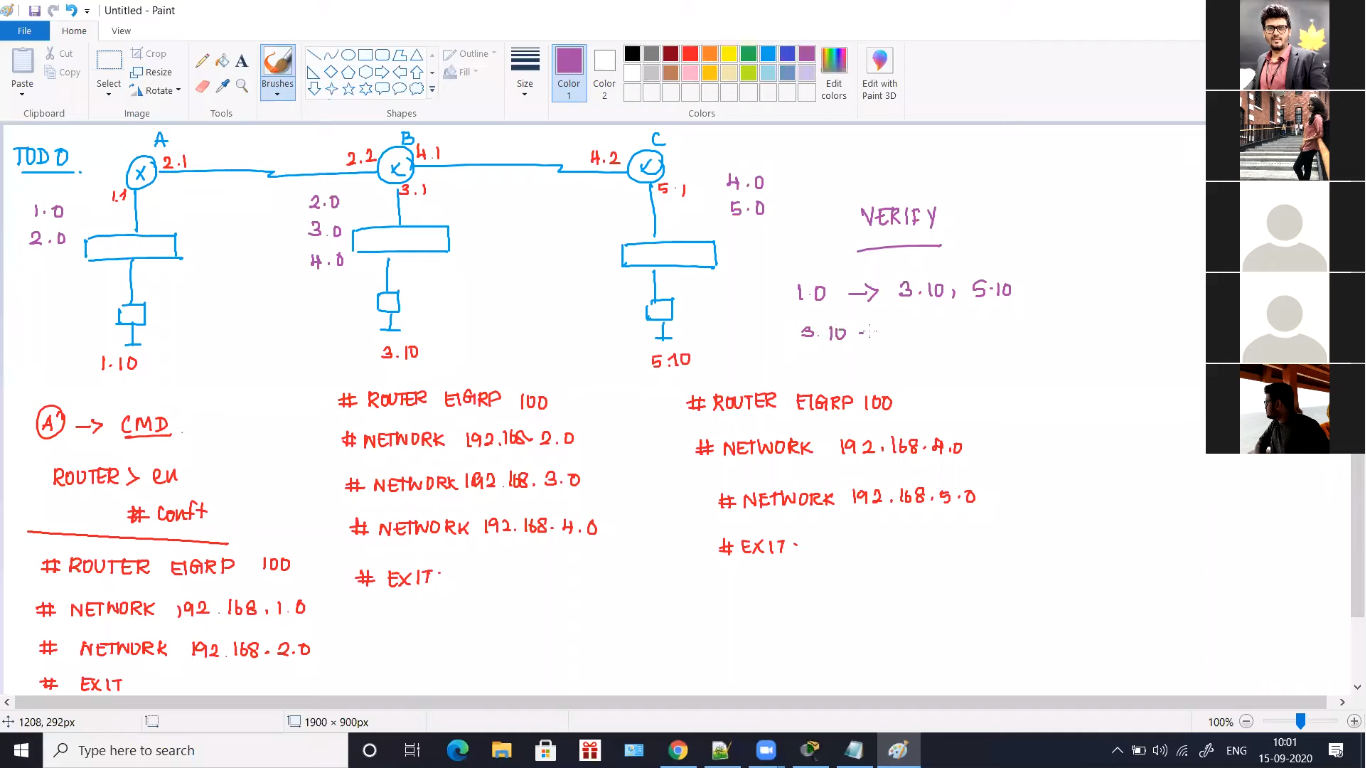 Untitled - Paint
File
Home
View
Paste
Cut
Copy
Clipboard
Select
Crop
Resize
Rotate
Image
A
Tools
Brushes
Outline
Fill
Shapes
Size
Color 1
Color 2
Edit colors
Edit with Paint 3D
Colors
TODO
A
B
C
2.1
2.2
4.1
4.2
X
X
X
1.1
3.1
5.1
1.0
2.0
2.0
3.0
4.0
4.0
5.0
VERIFY
1.0 → 3.10, 5.10
3.10 -
1.10
3.10
5.10
A → CMD
ROUTER > en
# conft
# ROUTER EIGRP 100
# NETWORK 192.168.1.0
# NETWORK 192.168.2.0
# EXIT
# ROUTER EIGRP 100
# NETWORK 192.168.2.0
# NETWORK 192.168.3.0
# NETWORK 192.168.4.0
# EXIT
# ROUTER EIGRP 100
# NETWORK 192.168.4.0
# NETWORK 192.168.5.0
# EXIT
1208, 292px
1900 × 900px
100%
Type here to search
ENG
10:01
15-09-2020